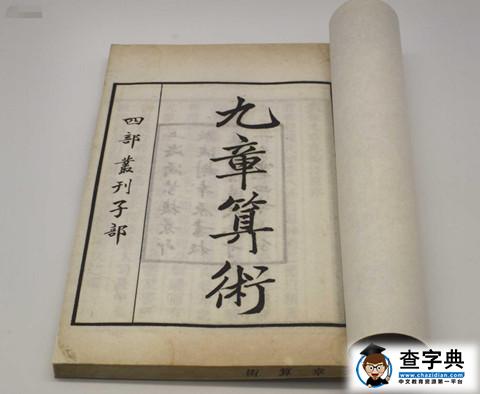 九章算術
四部叢刊子部
術算章
查字典
www.chazidian.com
中文教育资源第一平台